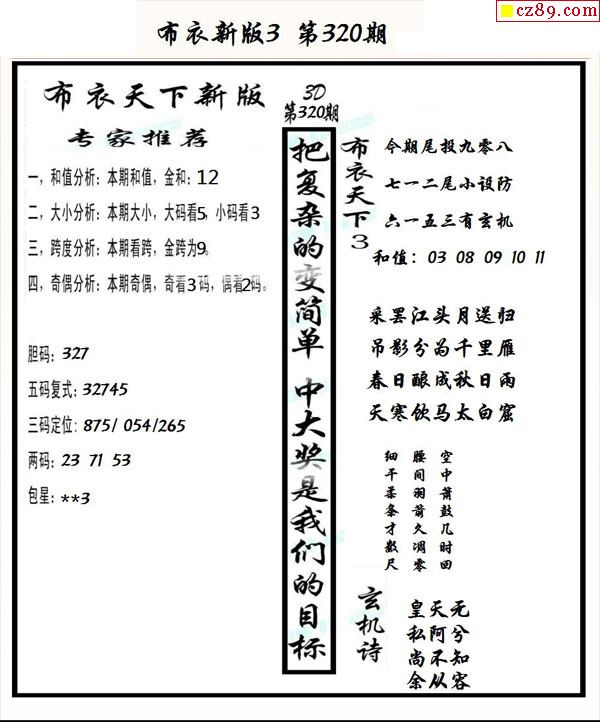 cz89.com
布衣新版3 第320期
布衣天下新版
专家推荐
一，和值分析：本期和值，金和：12
二，大小分析：本期大小，大码看5，小码看3
三，跨度分析：本期看跨，金跨为9。
四，奇偶分析：本期奇偶，奇看3码，偶看2码。
胆码：327
五码复式：32745
三码定位：875/ 054/265
两码：23 71 53
包星：**3
3D
第320期
把复杂的变简单 中大奖是我们的目标
布衣天下3
今期尾投九零八
七一二尾小设防
六一五三有玄机
和值：03 08 09 10 11
采罢江头月送归
吊影分为千里雁
春日酿成秋日雨
天寒饮马太白窟
空中箫鼓几时回
腰间羽箭久凋零
细干柔条才数尺
玄机诗
皇天无
私阿兮
尚不知
余从容